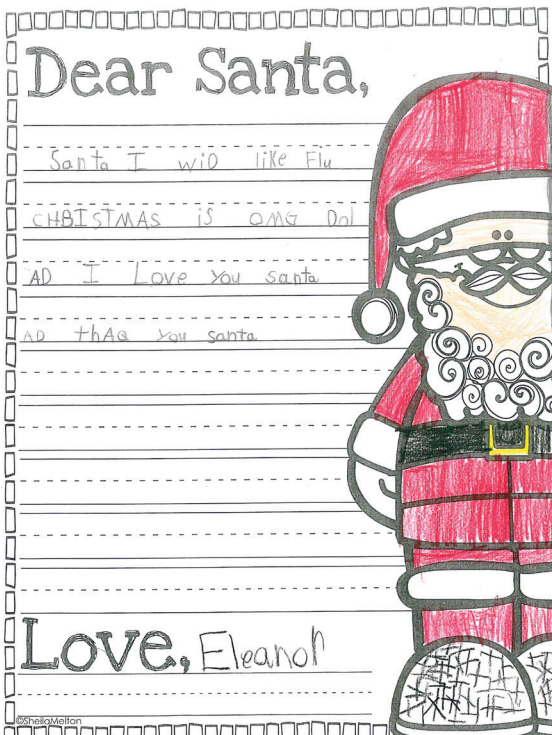 Dear Santa,
Santa I wio like Flu
CHBISTMAS is OMG Dol
AD I Love you santa
AD thAQ you santa
Love, Eleanor
©SheilaMelton